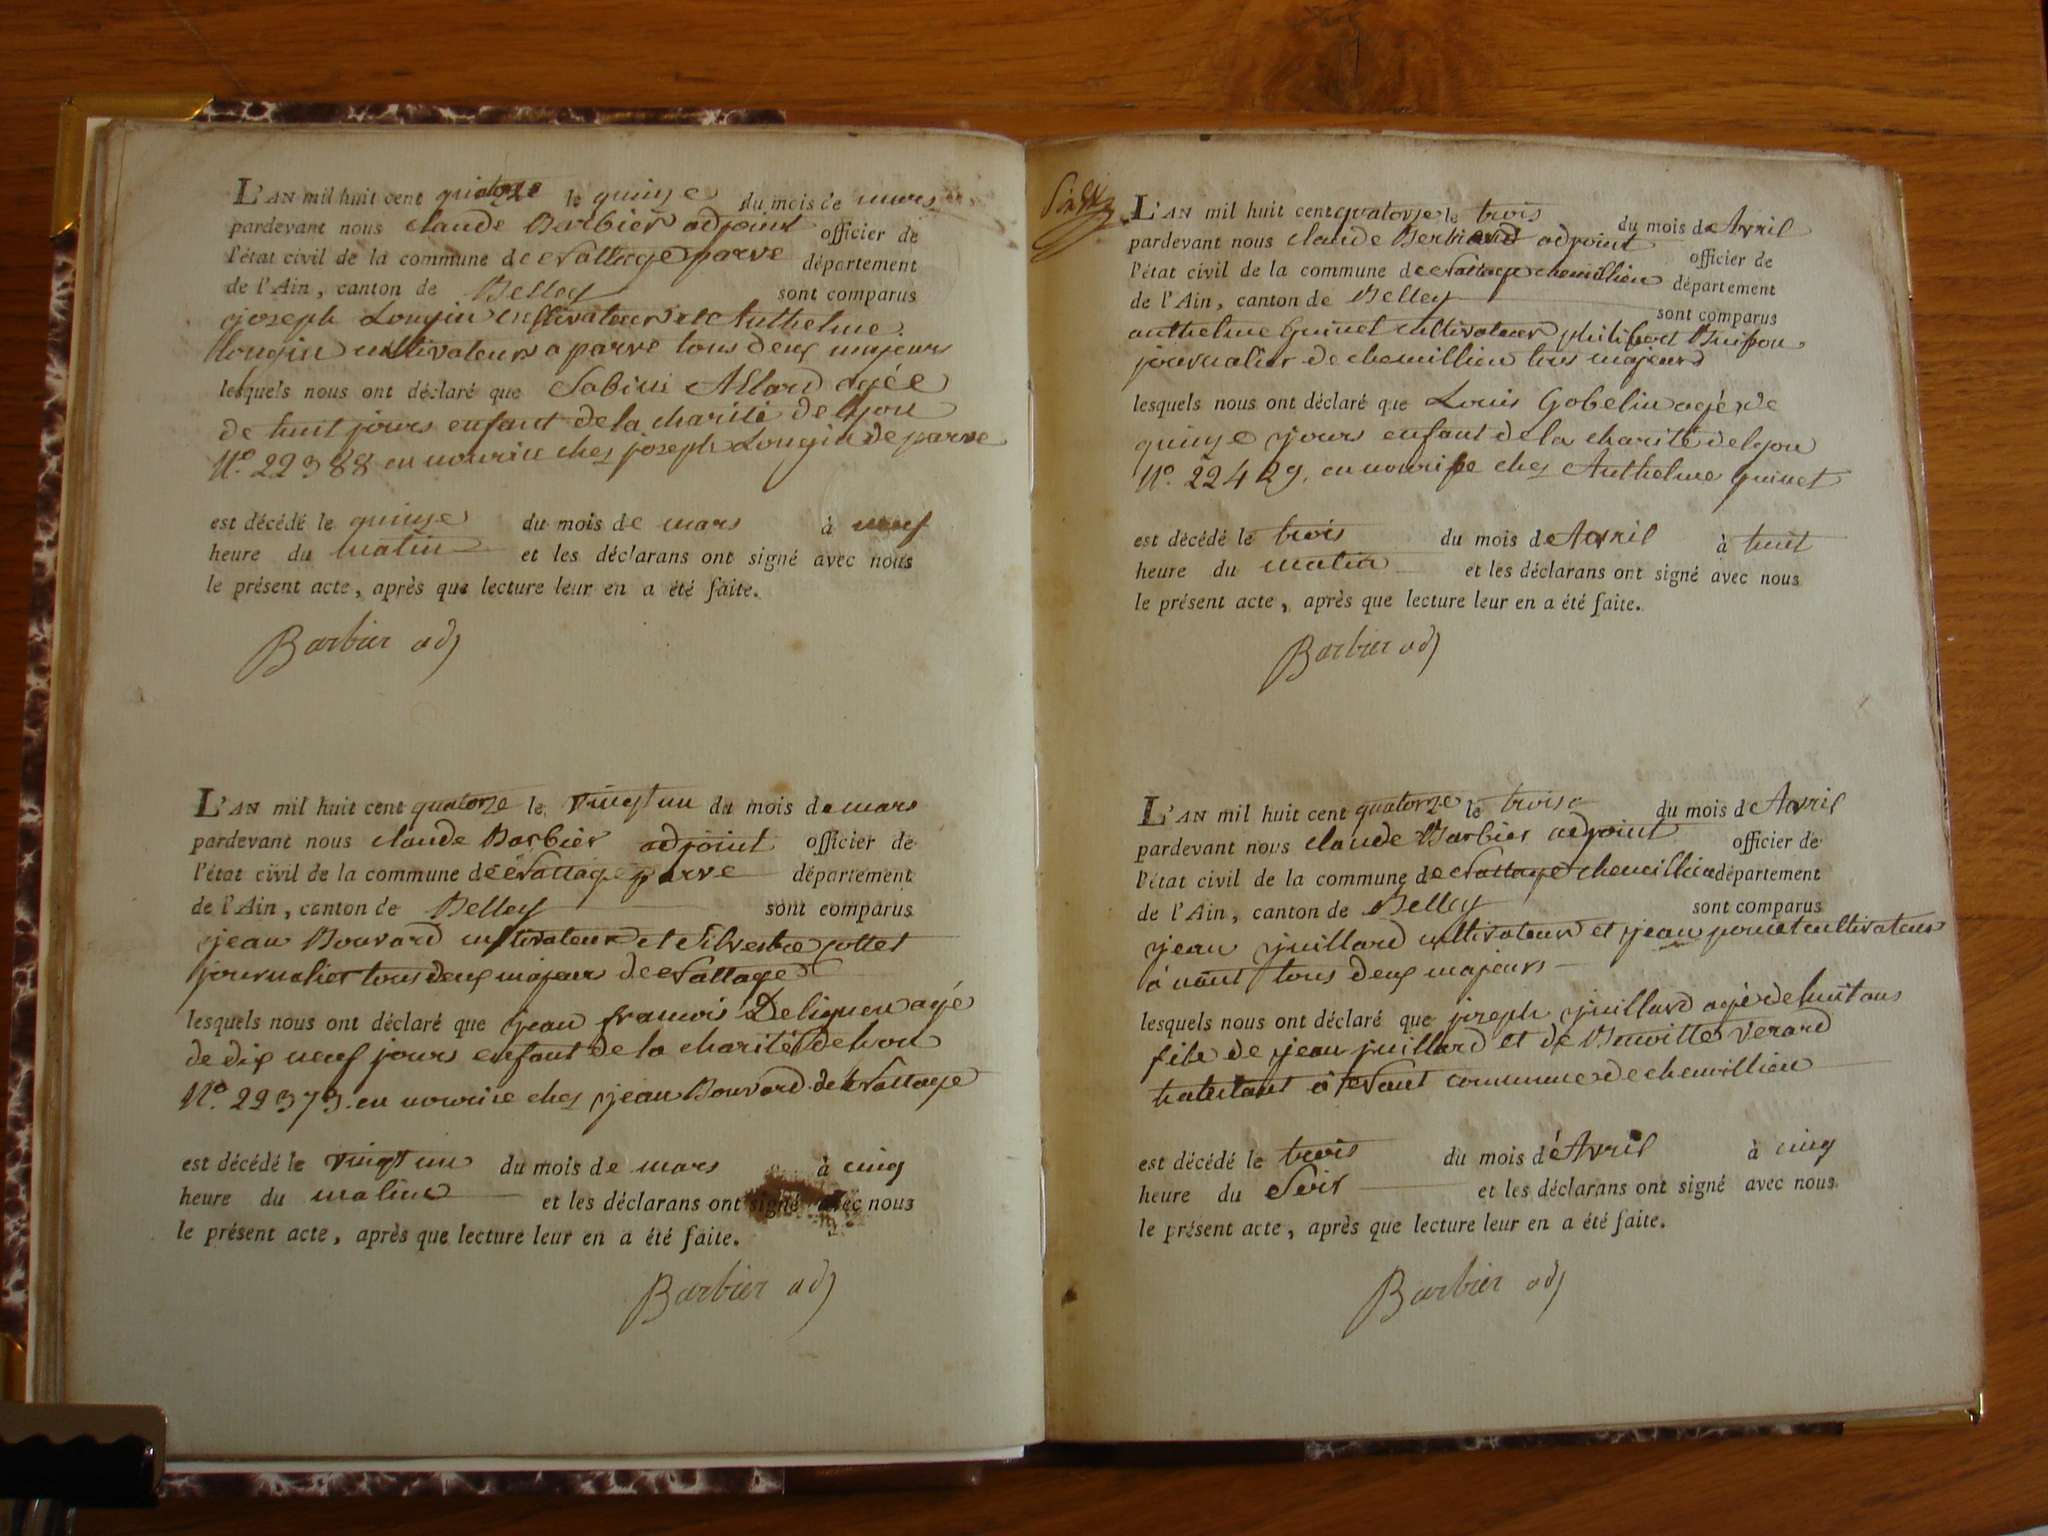 L'AN mil huit cent quatorze le quinze du mois de mars
pardevant nous claude Barbier adjoint officier de
l'état civil de la commune de Nattage parve département
de l'Ain, canton de Belley sont comparus
joseph Longin cultivateur et Anthelme
Longin cultivateurs a parve tous deux majeurs
lesquels nous ont déclaré que Sabine Allard agée
de huit jours enfant de la charité de lyon
N.º 22388 en nourice chez joseph Longin de parve
est décédé le quinze du mois de mars à neuf
heure du matin et les déclarans ont signé avec nous
le présent acte, après que lecture leur en a été faite.
Barbier adj
L'AN mil huit cent quatorze le vingt un du mois de mars
pardevant nous claude Barbier adjoint officier de
l'état civil de la commune de Nattage parve département
de l'Ain, canton de Belley sont comparus
jean Bouvard cultivateur et Silvestre cottet
journalier tous deux majeurs de Nattage
lesquels nous ont déclaré que jean francois agé
de dix neuf jours enfant de la charité de lyon
N.º 22373 en nourice chez jean Bouvard de Nattage
est décédé le vingt un du mois de mars à cinq
heure du matin et les déclarans ont signé avec nous
le présent acte, après que lecture leur en a été faite.
Barbier adj
L'AN mil huit cent quatorze le trois du mois de Avril
pardevant nous claude adjoint officier de
l'état civil de la commune de Nattage chemillieu département
de l'Ain, canton de Belley sont comparus
anthelme Guinet cultivateur philibert
journalier de chemillieu tous majeurs
lesquels nous ont déclaré que Louis Gobelin agé de
quinze jours enfant de la charité de lyon
N.º 22429, en nourisse chez Anthelme guinet
est décédé le trois du mois de Avril à huit
heure du matin et les déclarans ont signé avec nous
le présent acte, après que lecture leur en a été faite.
Barbier adj
L'AN mil huit cent quatorze le trois du mois de Avril
pardevant nous claude Barbier adjoint officier de
l'état civil de la commune de Nattage chemillieu département
de l'Ain, canton de Belley sont comparus
jean juillard cultivateur et jean cultivateur
à tous deux majeurs
lesquels nous ont déclaré que joseph juillard agé de huit ans
fils de jean juillard et de Benoitte Verard
habitant à commune de chemillieu
est décédé le trois du mois de Avril à cinq
heure du Soir et les déclarans ont signé avec nous
le présent acte, après que lecture leur en a été faite.
Barbier adj